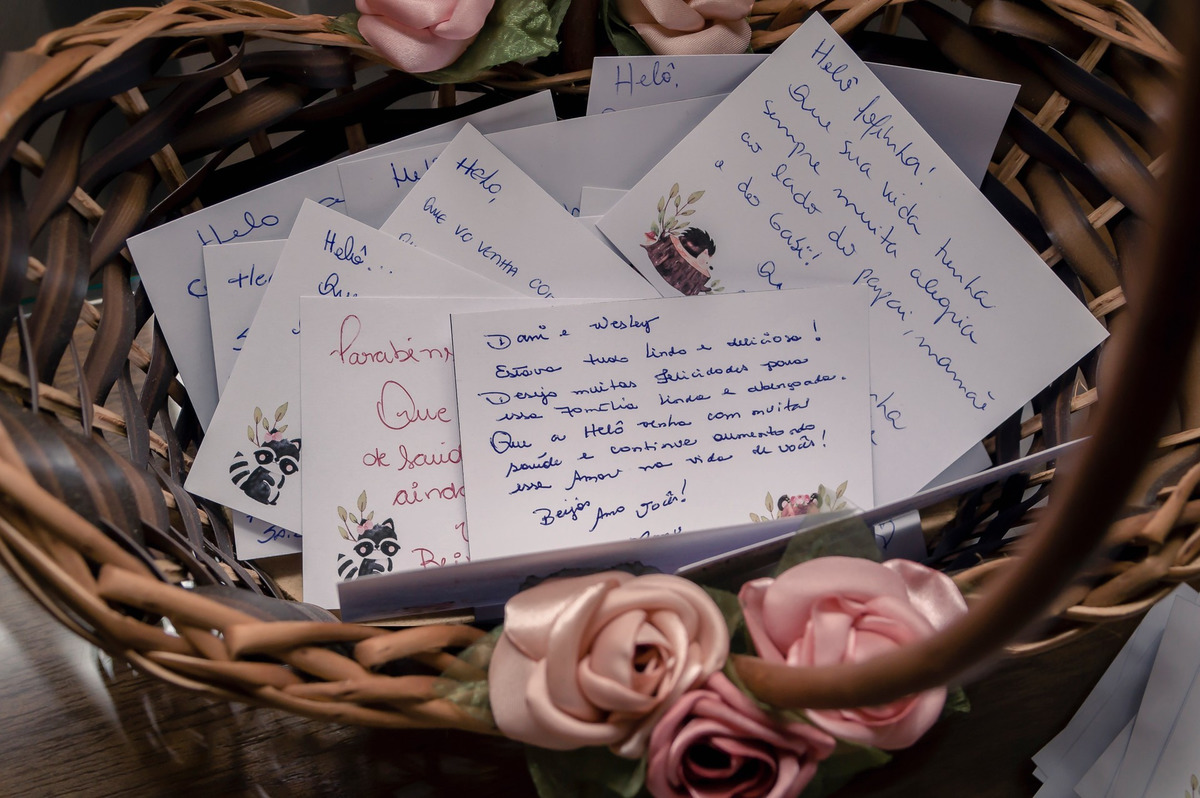 Helô,
Helô fofinha!
Que sua vida tenha
sempre muita alegria
ao lado do papai, mamãe
e do Gabi!
Helo
Helo,
QUE VC VENHA CO
Helô...
Que
Parabéns
Que
de Saúd
ainda
Bei
Dani e Wesley
Estava tudo lindo e delicioso!
Desejo muitas felicidades para
essa Família linda e abençoada.
Que a Helô venha com muita
saúde e continue aumentando
esse Amor na vida de vocês!
Beijos Amo Vocês!